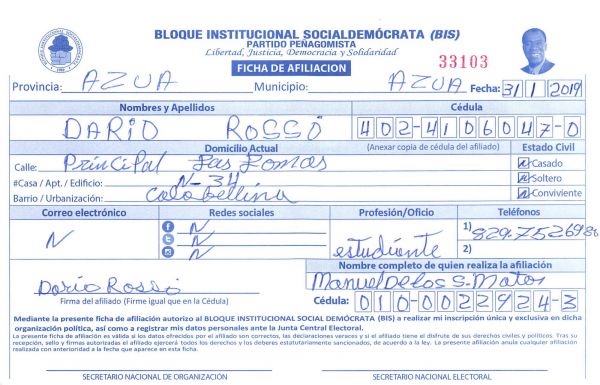 BLOQUE INSTITUCIONAL SOCIALDEMÓCRATA (BIS)
PARTIDO PEÑAGOMISTA
Libertad, Justicia, Democracia y Solidaridad
33103
FICHA DE AFILIACION
Provincia: AZUA Municipio: AZUA Fecha: 31/1/2019
Nombres y Apellidos Cédula
DARIO ROSSÓ 402-4106047-0
Domicilio Actual (Anexar copia de cédula del afiliado) Estado Civil
Calle: Principal Las Lomas Casado
#Casa / Apt. / Edificio: N-34 Soltero
Barrio / Urbanización: Conviviente
Correo electrónico Redes sociales Profesión/Oficio Teléfonos
N N N N estudiante 1) 829-7526988
2)
Nombre completo de quien realiza la afiliación
Dario Rossó Manuel De los S. Matos
Firma del afiliado (Firme igual que en la Cédula) Cédula: 010-0022924-3
Mediante la presente ficha de afiliación autorizo al BLOQUE INSTITUCIONAL SOCIAL DEMÓCRATA (BIS) a realizar mi inscripción única y exclusiva en dicha
organización política, así como a registrar mis datos personales ante la Junta Central Electoral.
La presente ficha de afiliación es válida si los datos ofrecidos por el afiliado son correctos, las declaraciones veraces y si el afiliado tiene el disfrute de sus derechos civiles y políticos. Tras su
recepción, sello y firmas autorizadas el afiliado ejercerá todos los derechos y los deberes estatutariamente sancionados, de acuerdo a la ley. La presente afiliación anula cualquier afiliación
realizada con anterioridad a la fecha que aparece en esta ficha.
SECRETARIO NACIONAL DE ORGANIZACIÓN SECRETARIO NACIONAL ELECTORAL